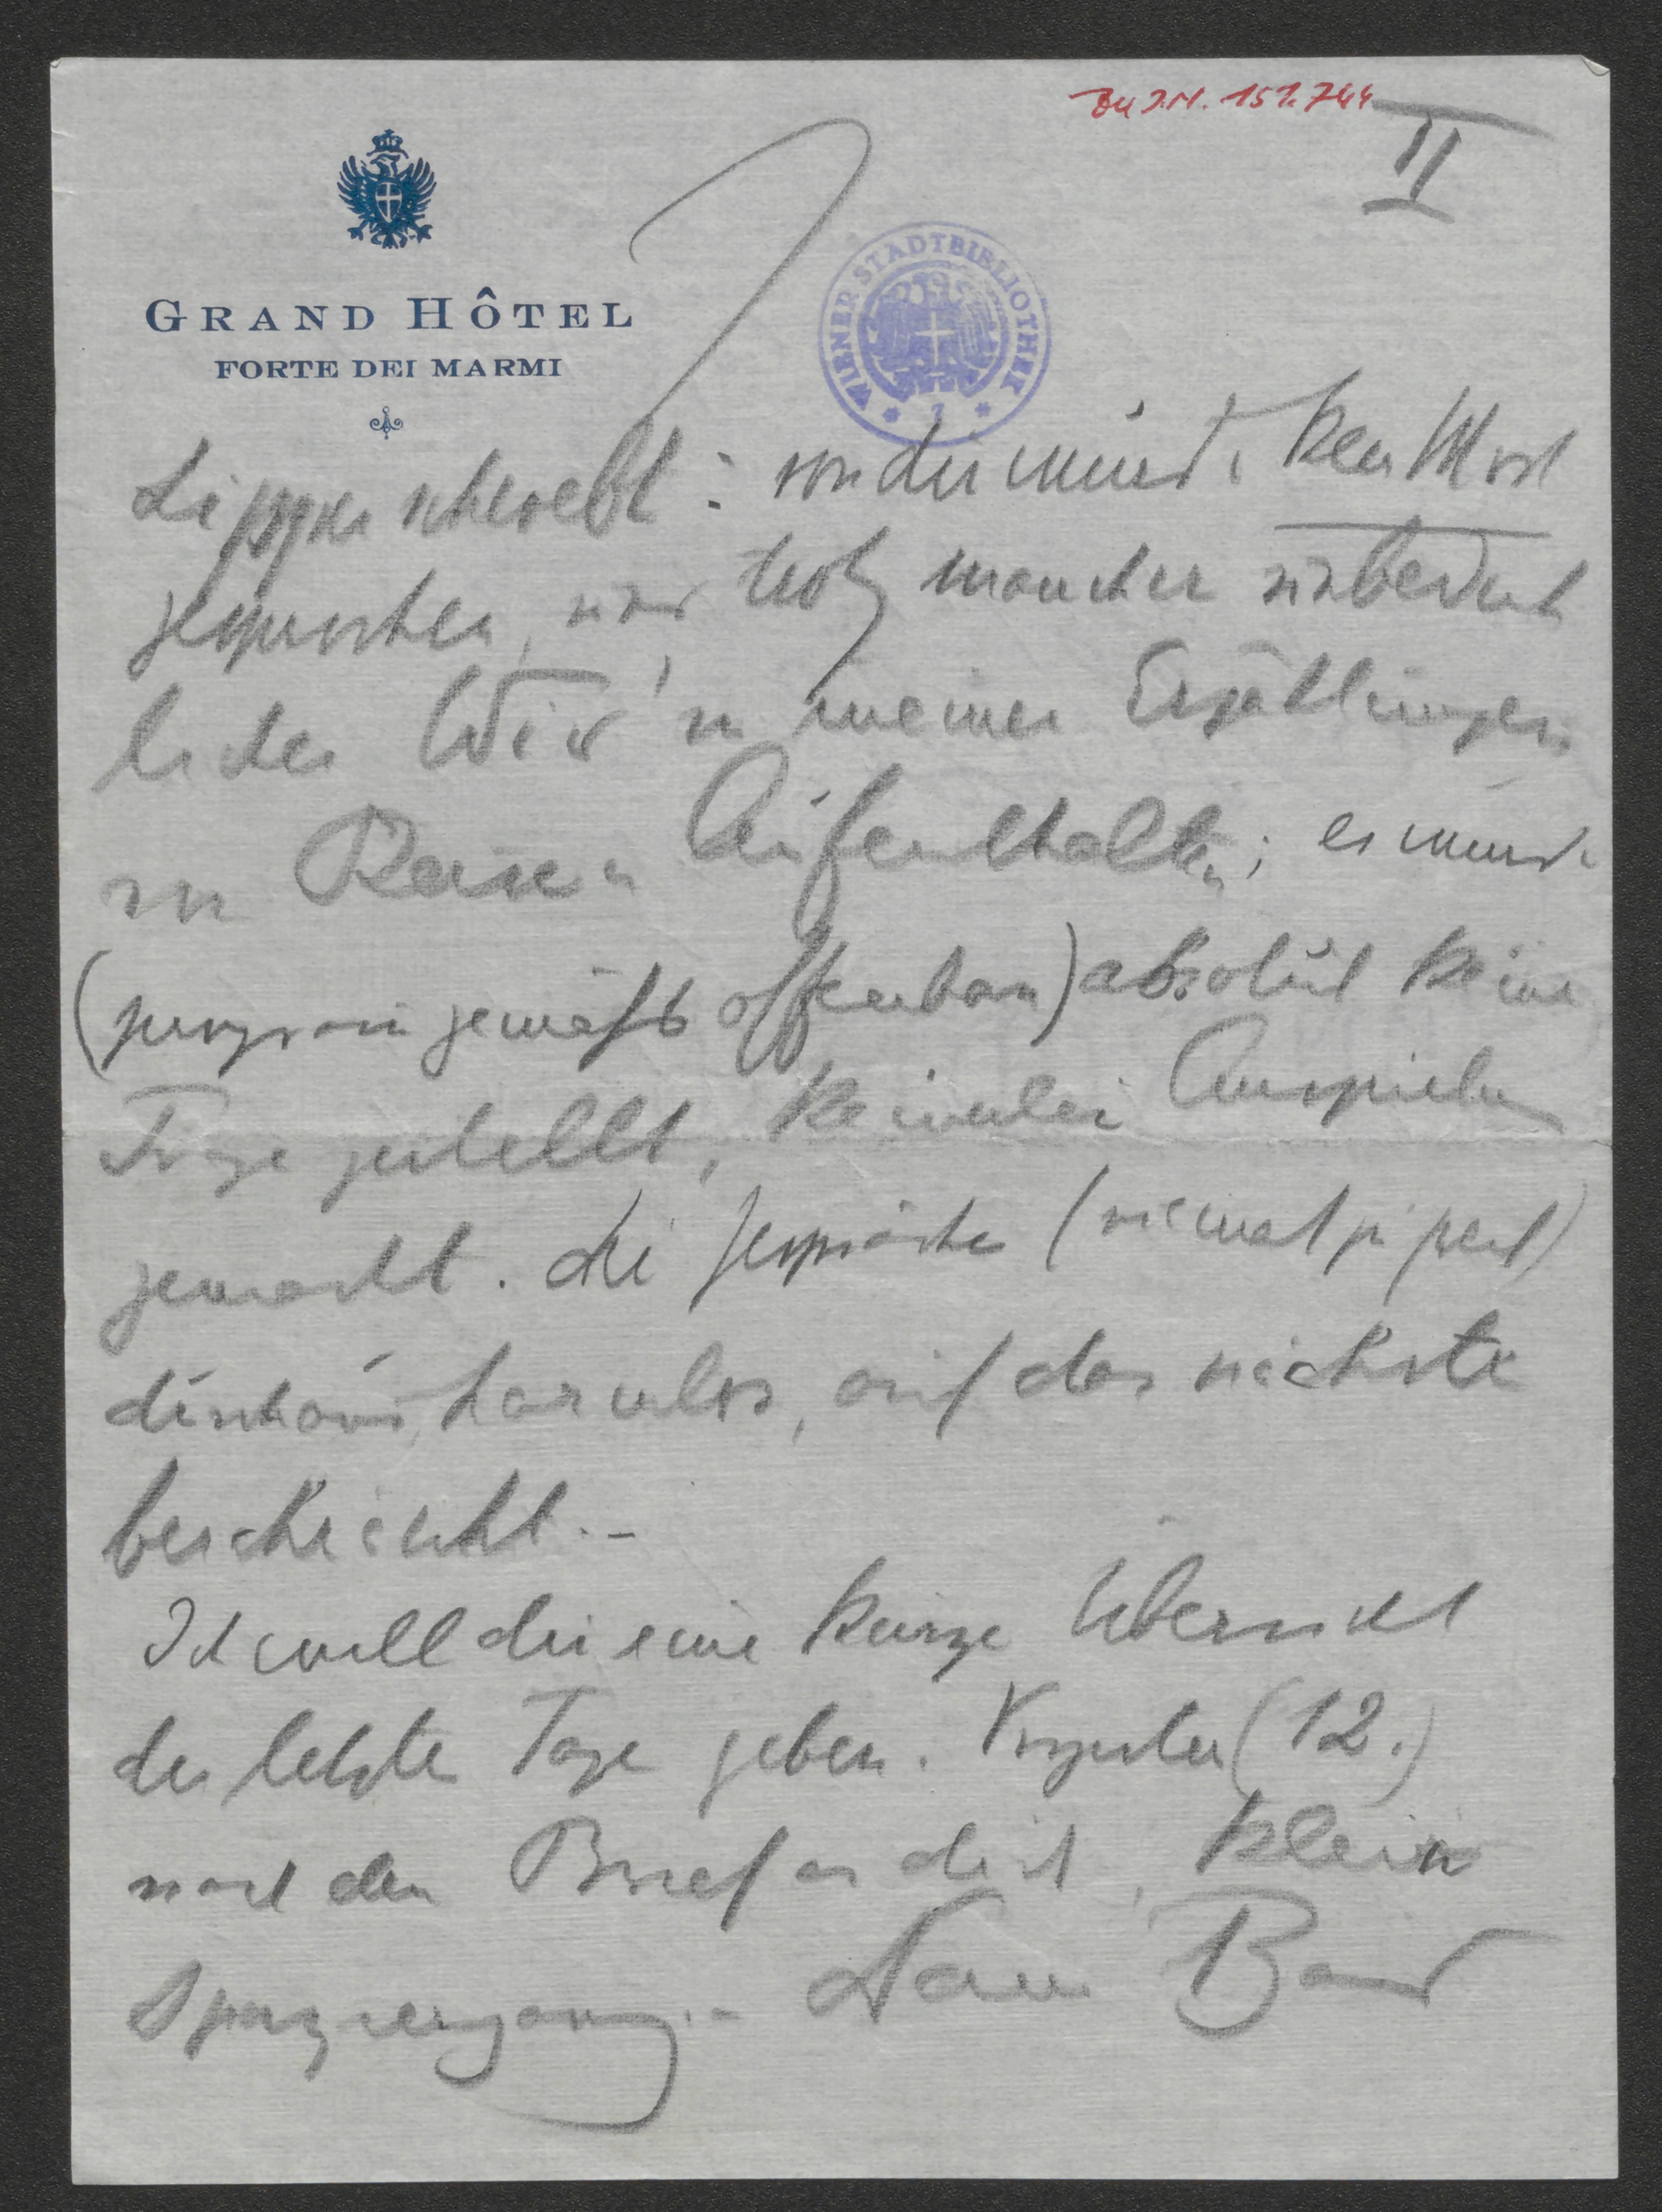 Zu I.N. 151.744
II
GRAND HÔTEL
FORTE DEI MARMI
WIENER STADTBIBLIOTHEK
7
Lippen schwebt: von dir wurde kein Wort
gesprochen, trotz mancher unbedenk
licher Wir in meinen Erzählungen
von Reise u Aufenthalten; es wurde
(programmgemäß offenbar) absolut keine
Frage gestellt, keinerlei Anspielung
gemacht. die Gespräche
durchaus harmlos, auf das nächste
beschränkt.–
Ich will dir eine kurze Übersicht
der letzten Tage geben. Vorgestern (12.)
nach dem Brief an dich, kleiner
Spaziergang.– Dann Bad